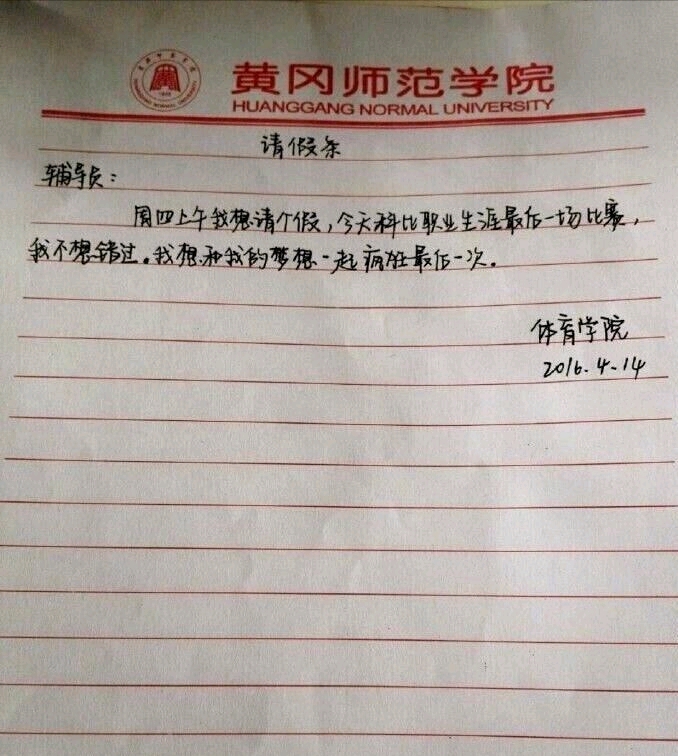 黄冈师范学院
HUANGGANG NORMAL UNIVERSITY
请假条
辅导员：
周四上午我想请个假，今天科比职业生涯最后一场比赛，
我不想错过。我想和我的梦想一起疯狂最后一次。
体育学院
2016.4.14